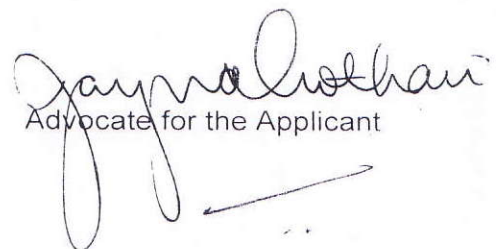 Jayna Kothari
Advocate for the Applicant